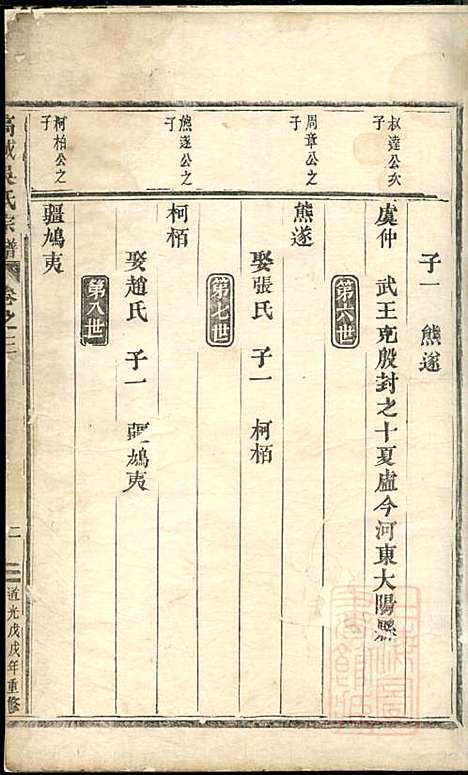 子一　熊遂
叔達公次子
虞仲　武王克殷封之十夏虛今河東大陽縣
第六世
周章公之子
熊遂
娶張氏　子一　柯栢
第七世
熊遂公之子
柯栢
娶趙氏　子一　疆鳩夷
第八世
柯柏公之子
疆鳩夷
吳氏宗譜
卷之三
二
道光戊戌年重修